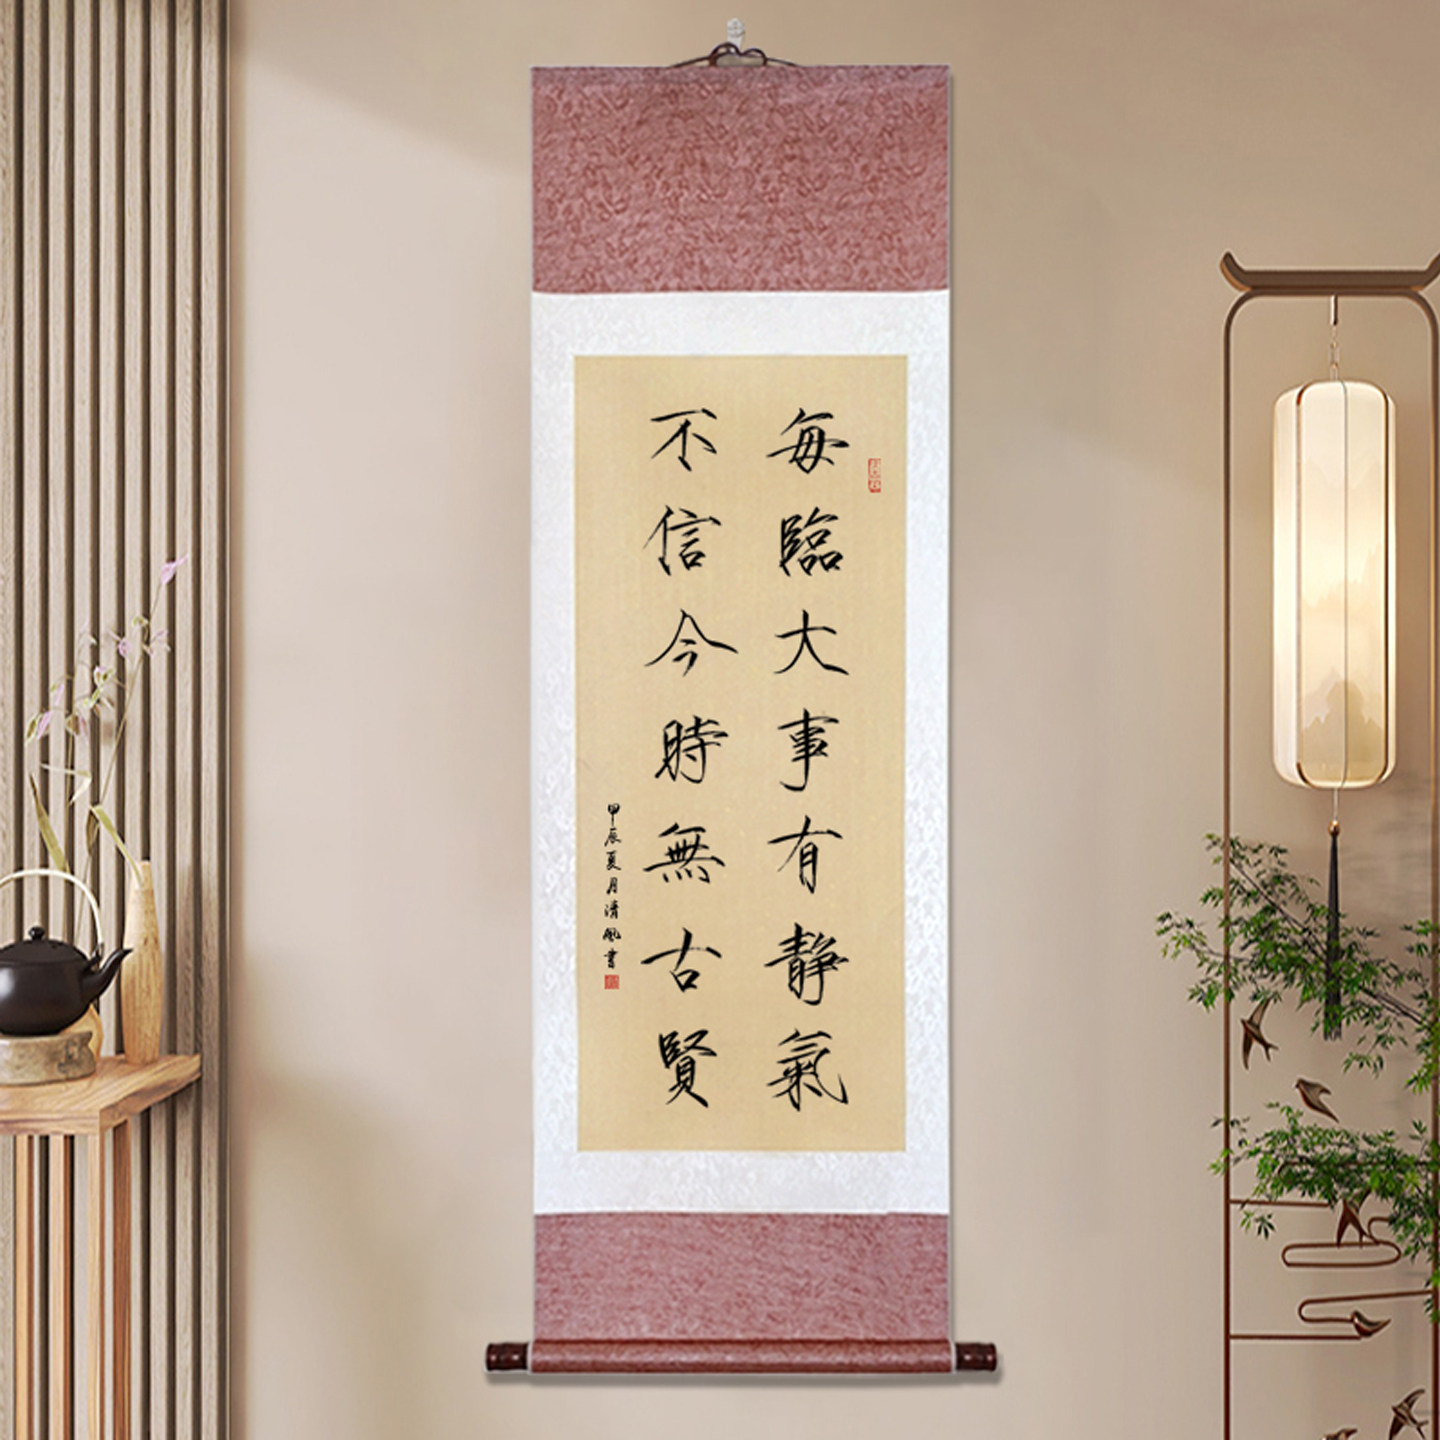 每臨大事有静氣
不信今時無古賢
甲辰夏月清風書